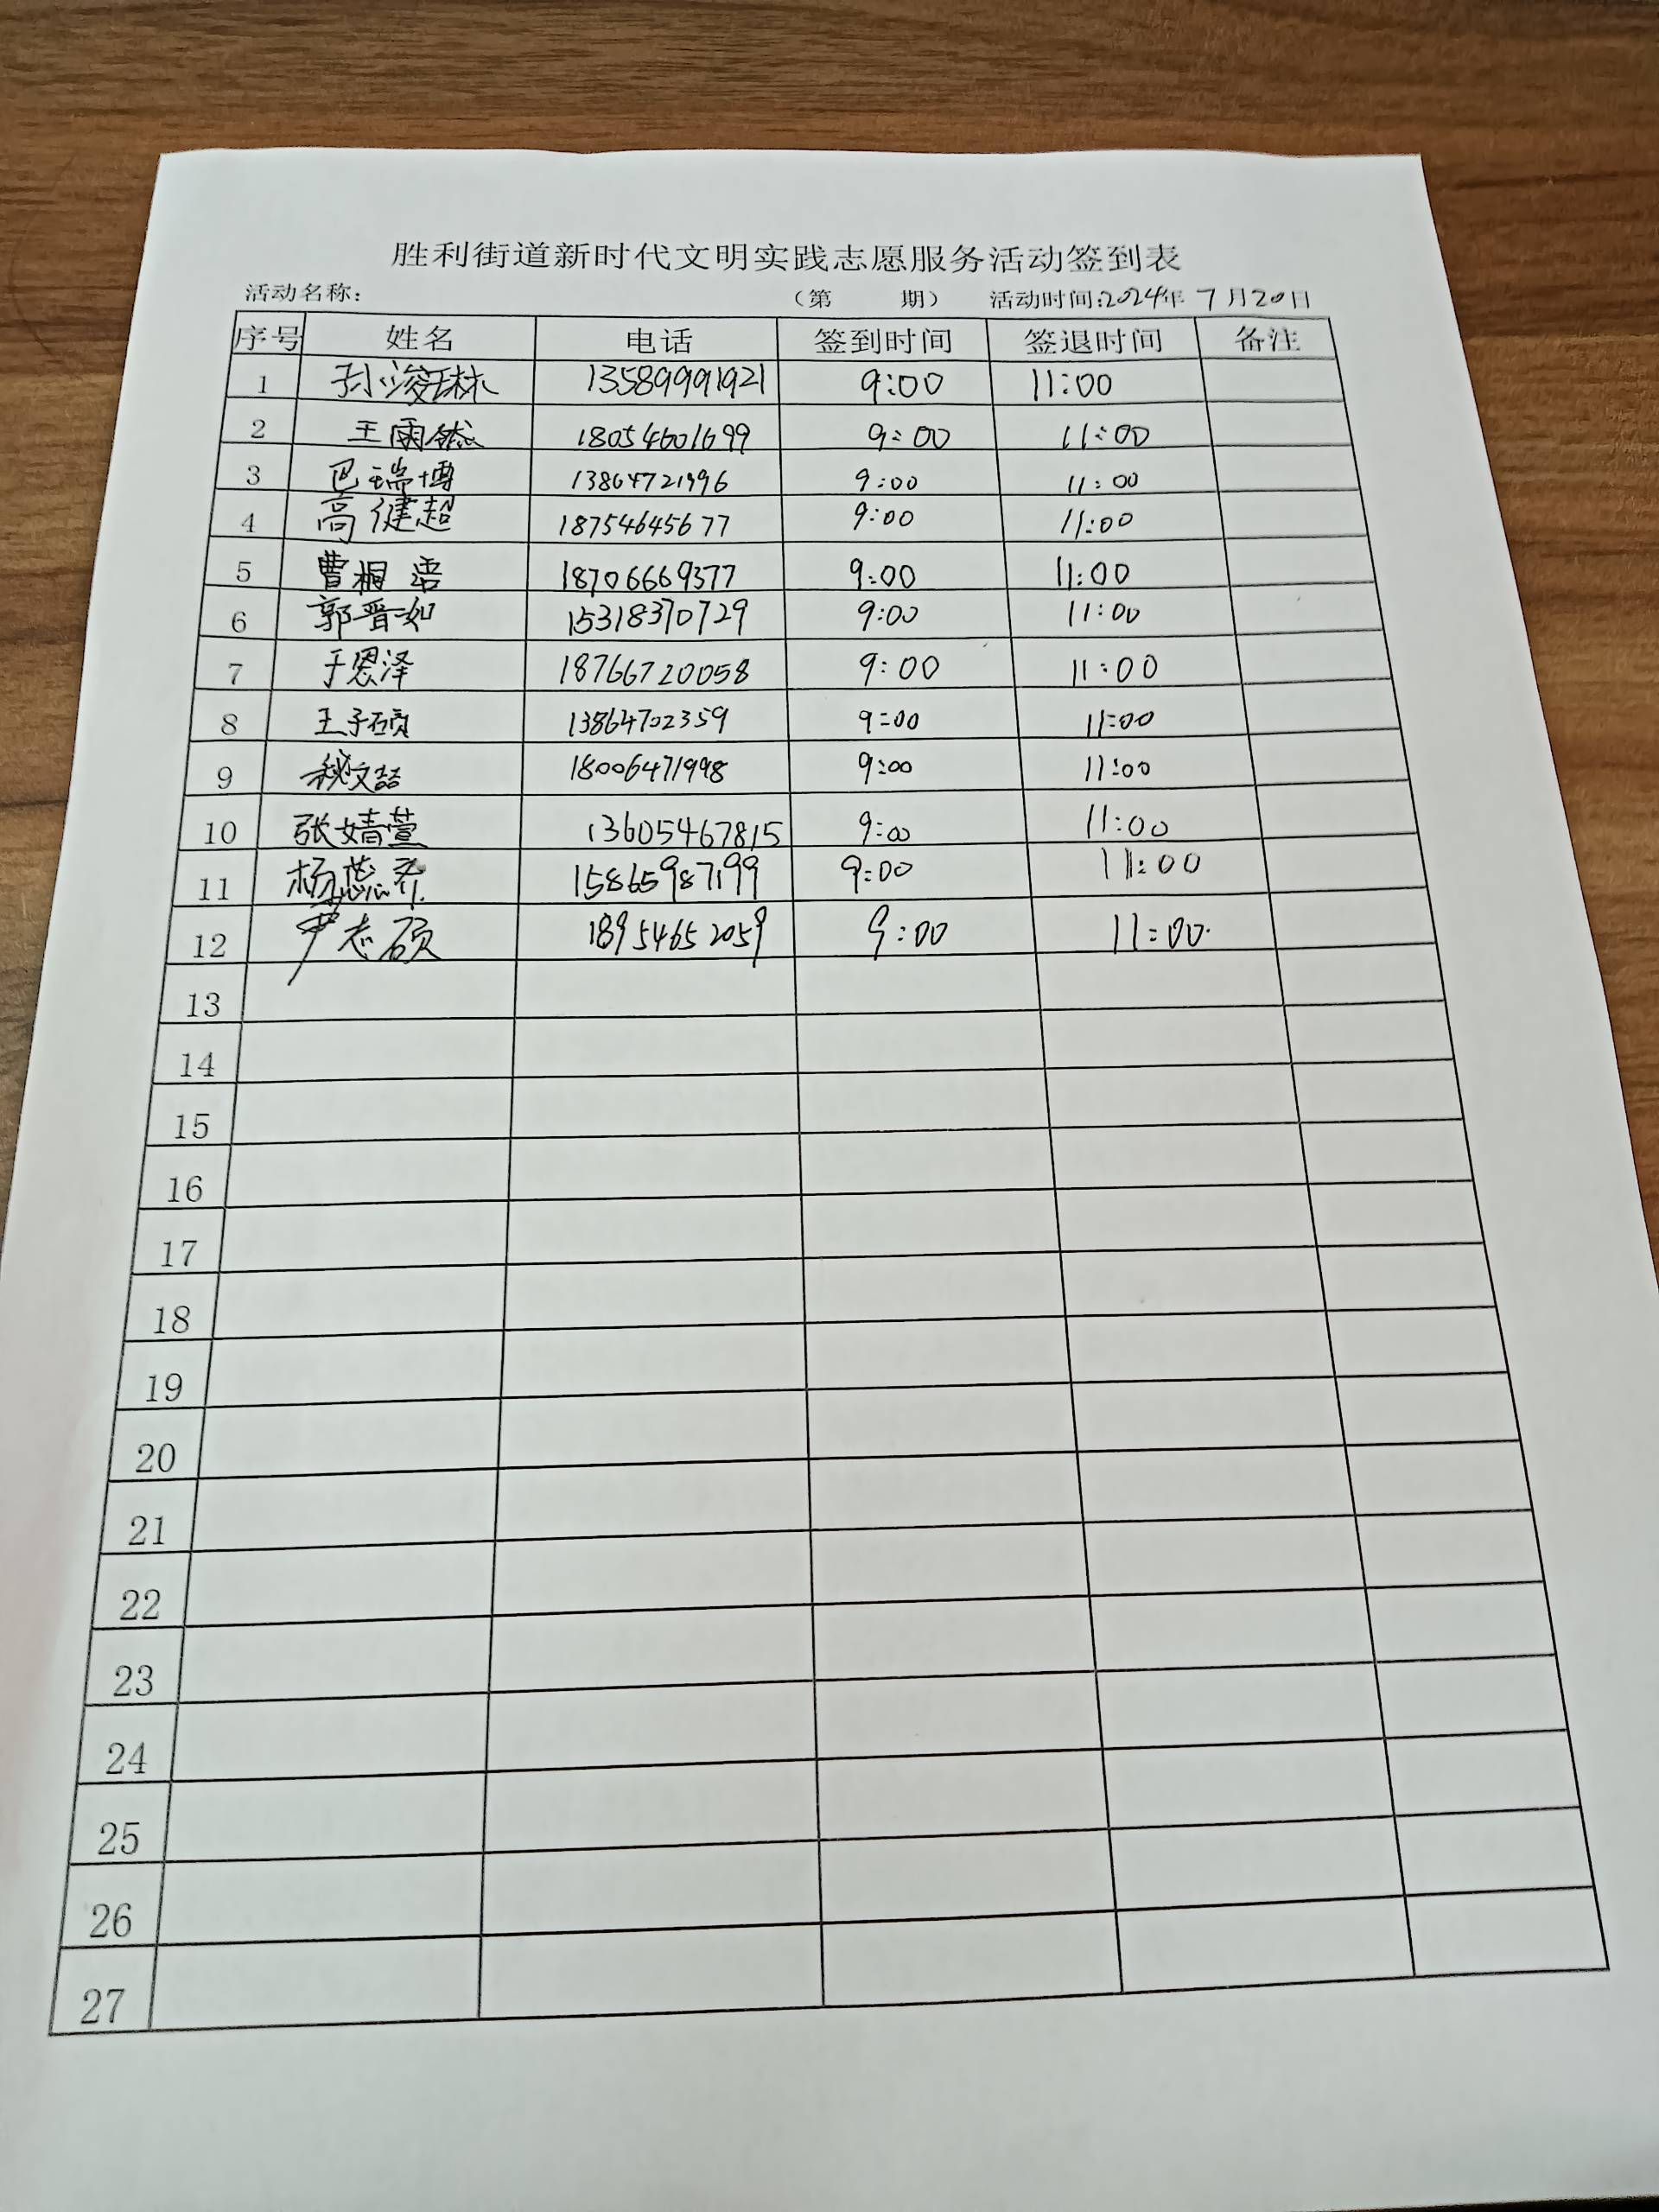 胜利街道新时代文明实践志愿服务活动签到表
活动名称: （第 期） 活动时间:2024年 7月20日
序号 姓名 电话 签到时间 签退时间 备注
1 孙浚琳 13589991921 9:00 11:00
2 王雨然 18054601699 9:00 11:00
3 巴瑞博 13864721996 9:00 11:00
4 高健超 18754645677 9:00 11:00
5 曹桐语 18706669377 9:00 11:00
6 郭晋如 15318370729 9:00 11:00
7 于恩泽 18766720058 9:00 11:00
8 王子硕 13864702359 9:00 11:00
9 秘文喆 18006471998 9:00 11:00
10 张婧萱 13605467815 9:00 11:00
11 杨蕊乔 15865987199 9:00 11:00
12 尹志硕 18954652059 9:00 11:00
13
14
15
16
17
18
19
20
21
22
23
24
25
26
27